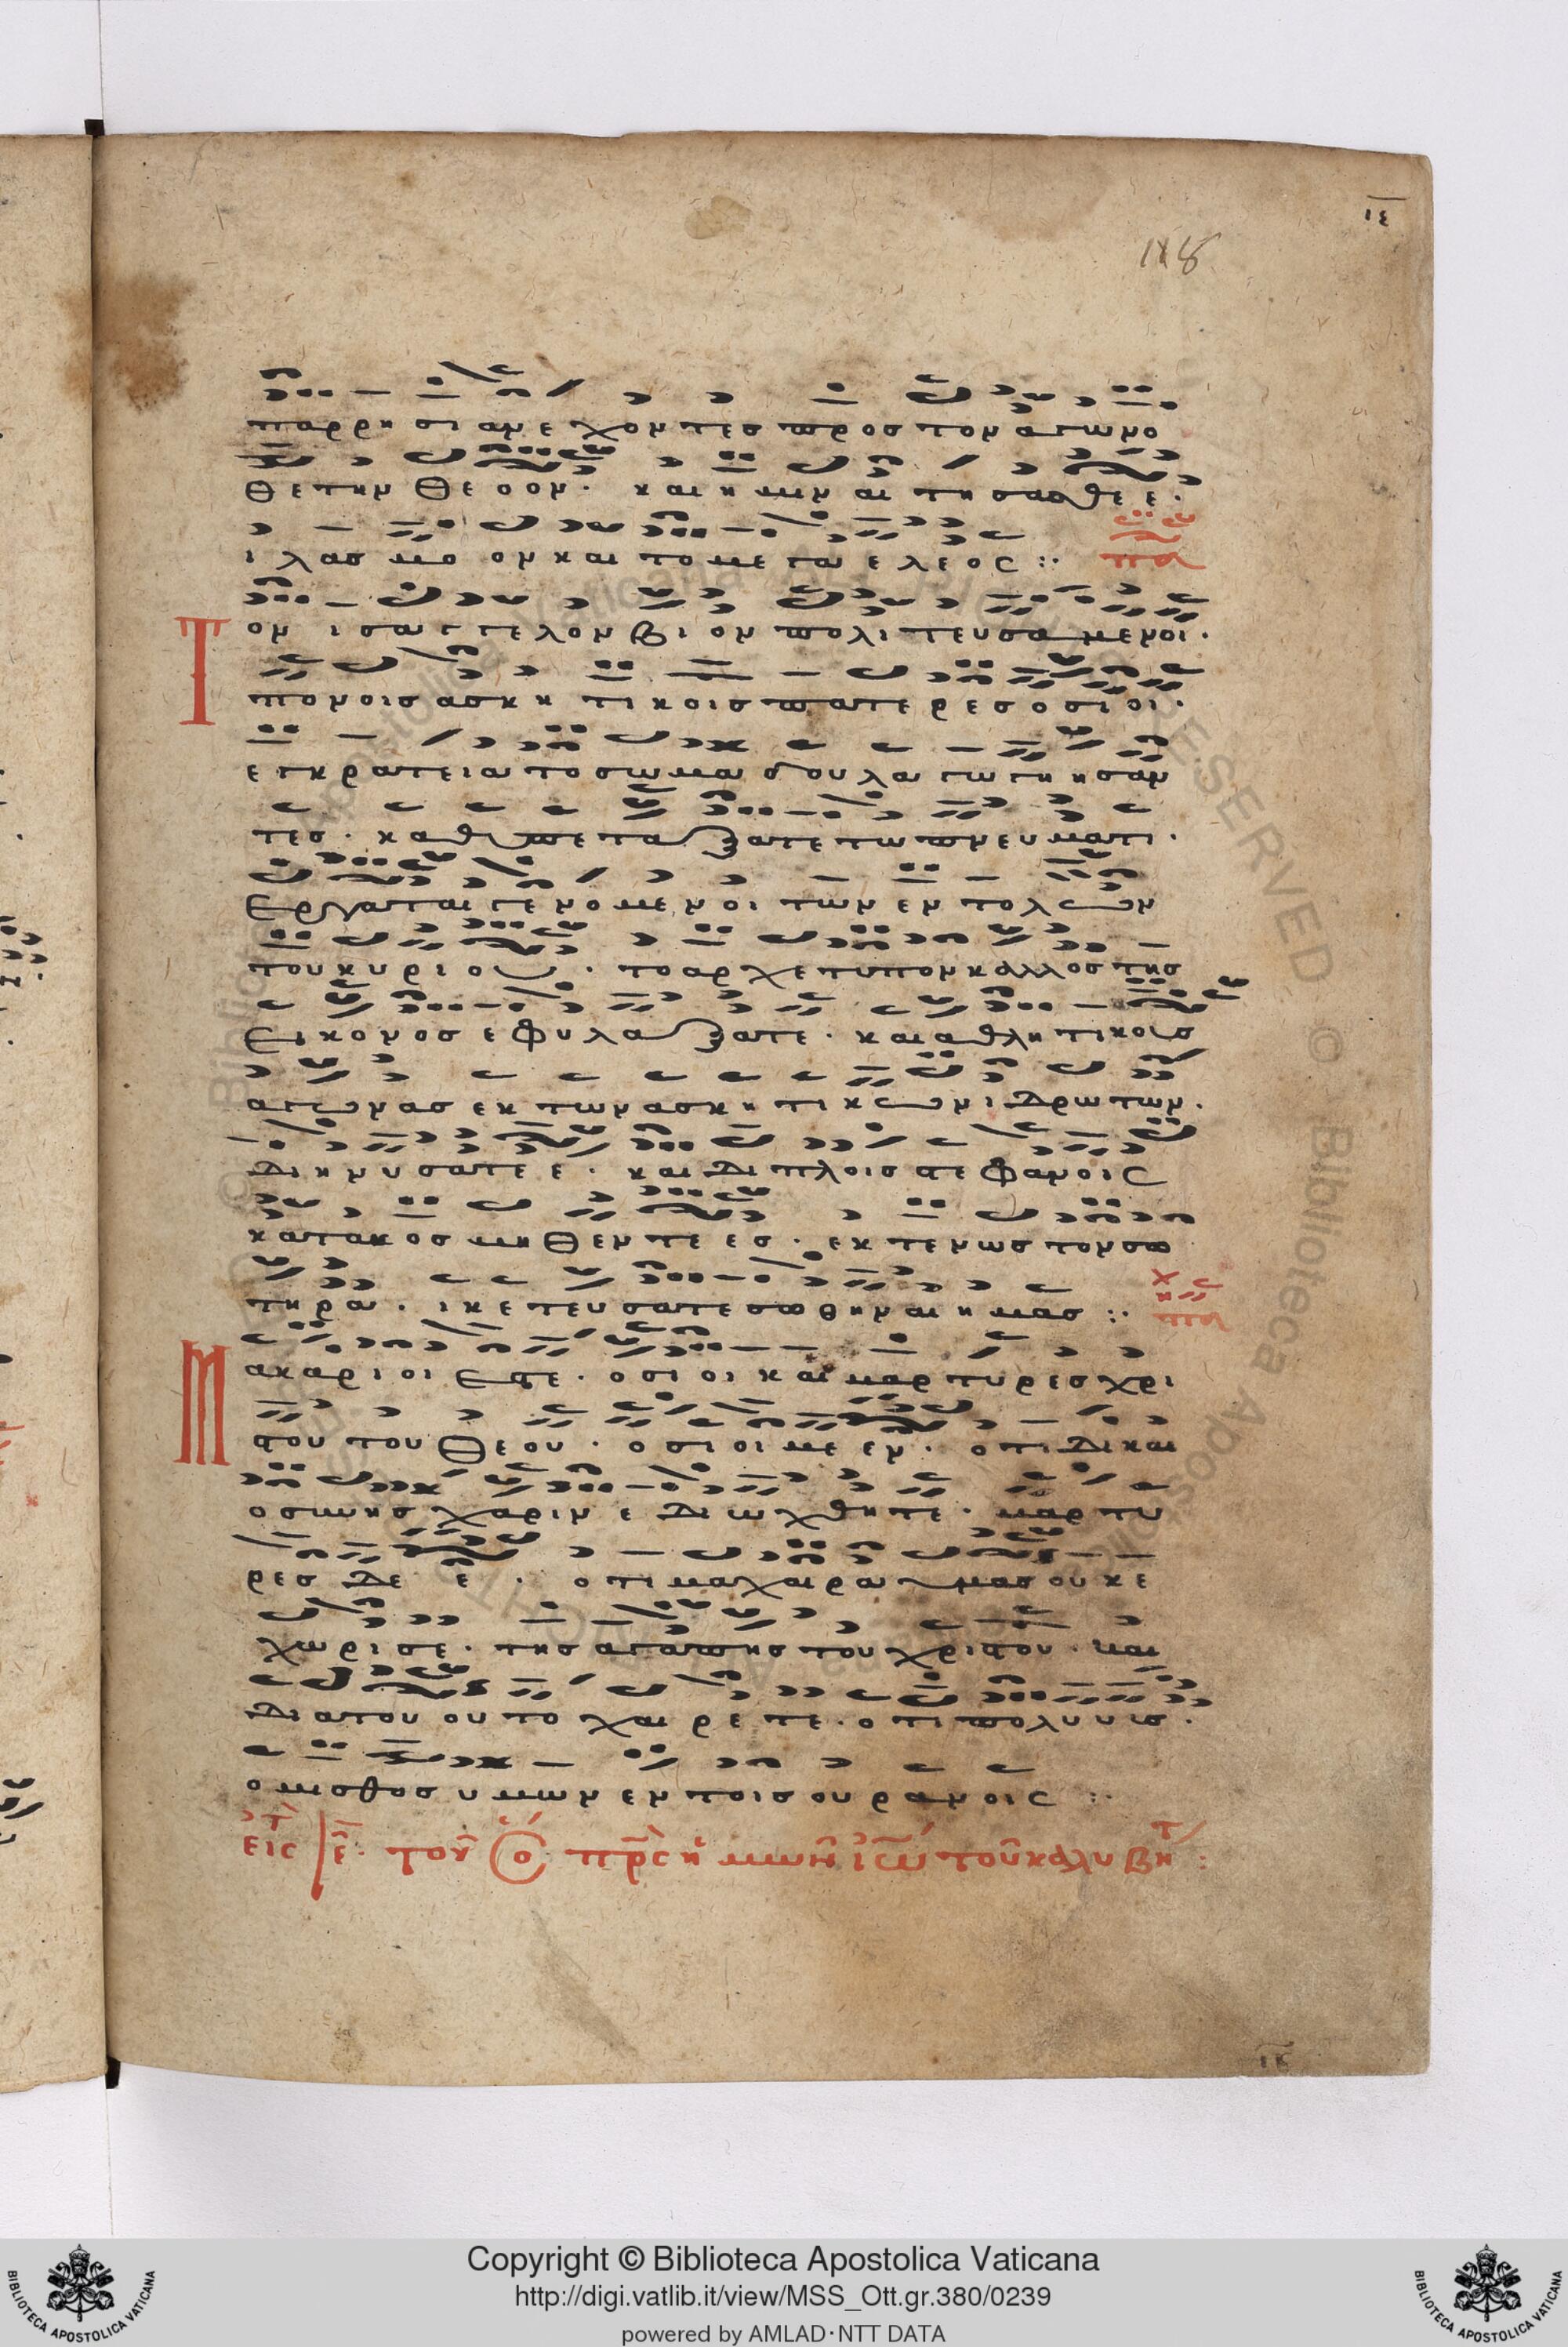 ιε
118
παρρη σι αν ε χον τες προς τον α γω νο
θε την Θε ο ον · και η μιν αι τη σασθε ε ·
ι λας μο ον και το με γα ε λε ος :· πλα
Τον ι σαγ γε λον βι ον πολι τευσα μενοι ·
πονοις ασκη τι κοις πατε ρες οσιοι ·
ε γκρατεια το σωμα δουλα γωγη η σαν
τες · καθυπεταξατε τω πνευματι ·
Εργαται γε νο με νοι των εν το λων
του κυρι ου · το αρχετυπον καλλος της
Εικονος ε φυ λαξατε · και αθλη τι κοις
αγωνας εκ των ασκη τι κων ι δρω των ·
δι η νυ σατε ε · και διπλοις στεφανοις
κατακος μηθεν τε ες · εκ τε νως τον σω
τη ρα · ι κε τευ σατε σωθηναι η μας :· πλα
Μακαρι οι Εστε · ο σι οι και μαρ τυ ρες χρι
στου του Θε ου · ο σι οι με εν · ο τι δι και
ο συνης χαριν ε δι ω χθη τε · μαρ τυ
ρες δε ε · ο τι μαχαι ρα υμας ου κε
χωρι σε · της αγαπης του χριστου · και
δι α του ου το χαι ρε τε · ο τι πολυ υις ·
ο μισθος υ μων εν τοις ου ρα νοις :·
εις τ ιε · του ὁ πρς ημων ιω του καλυβητ :
ιε
Copyright © Biblioteca Apostolica Vaticana
http://digi.vatlib.it/view/MSS_Ott.gr.380/0239
powered by AMLAD·NTT DATA
BIBLIOTECA APOSTOLICA VATICANA
BIBLIOTECA APOSTOLICA VATICANA